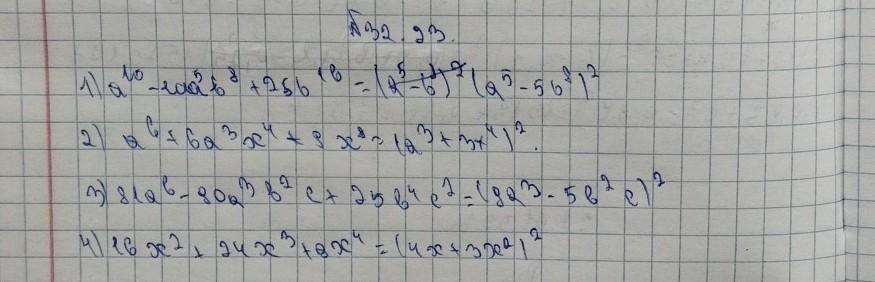 №32.23.
1) a¹⁰ - 10a⁵b⁸ + 25b¹⁶ = (a⁵ - 5b⁸)²
2) a⁶ + 6a³x⁴ + 9x⁸ = (a³ + 3x⁴)².
3) 81a⁶ - 90a³b²c + 25b⁴c² = (9a³ - 5b²c)²
4) 16x² + 24x³ + 9x⁴ = (4x + 3x²)²